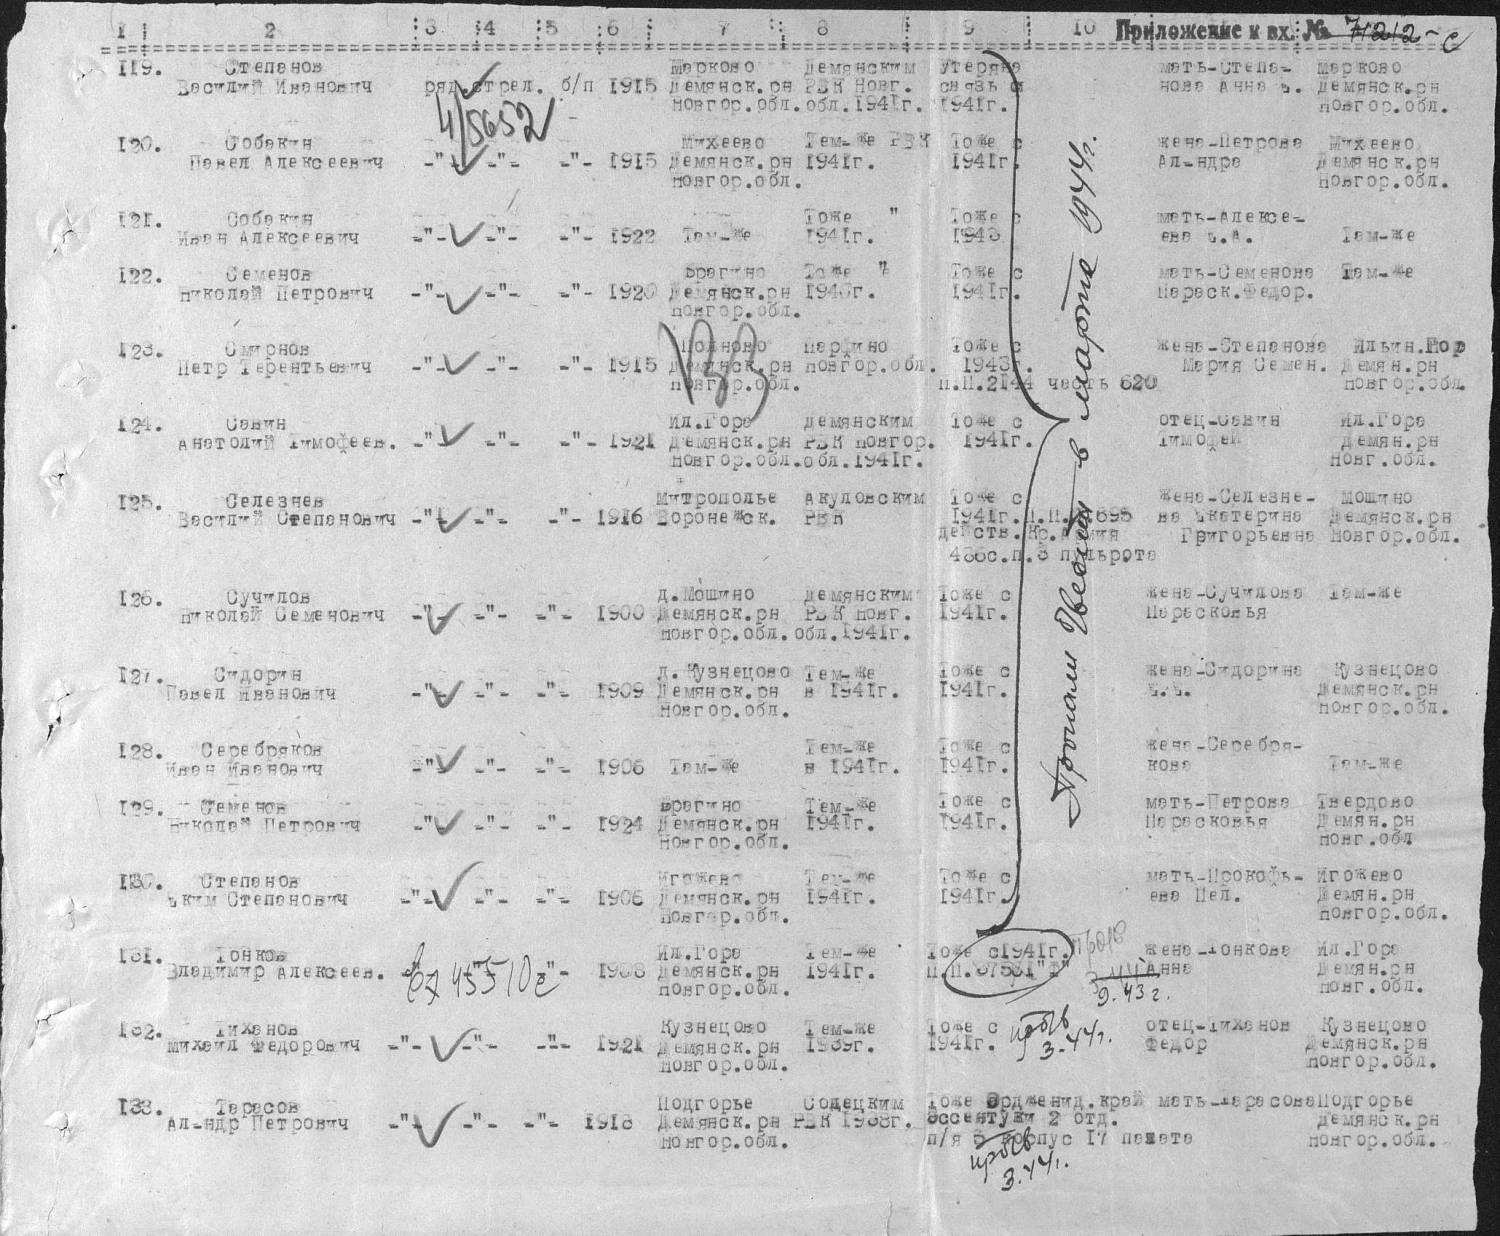 1 2 3 4 5 6 7 8 9 10 Приложение к вх. № 7212-с
119. Степанов Шарково Демянским Утеряна мать-Степа- Шарково
Василий Иванович ряд.стрел. б/п 1915 Демянск.рн РВК Новг. связь с нова Анна Демянск.рн
Новгор.обл.обл.1941г. 1941г. Новгор.обл.
4/5652
120. Собакин Михеево Тем-же РВК Тоже с жена-Петрова Михеево
Павел Алексеевич -"- -"- -"- 1915 Демянск.рн 1941г. 1941г. Ал-ндра Демянск.рн
Новгор.обл. Новгор.обл.
121. Собакин Тоже " Тоже с мать-Алексе-
Иван Алексеевич -"- -"- -"- 1922 Там-же 1941г. 1943 ева Е.А. Там-же
122. Семенов Брагино Тоже " Тоже с мать-Семенова Там-же
Николай Петрович -"- -"- -"- 1920 Демянск.рн 1940г. 1941г. Параск.Федор.
Новгор.обл.
123. Смирнов Полново Марфино Тоже с жена-Степанова Ильин.Гор
Петр Терентьевич -"- -"- -"- 1915 Демянск.рн Новгор.обл. 1943г. Мария Семен. Демян.рн
Новгор.обл. п.п.2144 часть 620 Новгор.обл.
124. Савин Ил.Гора Демянским Тоже с отец-Савин Ил.Гора
Анатолий Тимофеев. -"- -"- -"- 1921 Демянск.рн РВК Новгор. 1941г. Тимофей Демян.рн
Новгор.обл.обл.1941г. Новг.обл.
125. Селезнев Митрополье Акуловским Тоже с жена-Селезне- Мошино
Василий Степанович -"- -"- -"- 1916 Воронежск. РВК 1941г.п.п. 695 ва Екатерина Демянск.рн
действ.Кр.Армия Григорьевна Новгор.обл.
486с.п.3 пульрота
126. Сучилов д.Мошино Демянским Тоже с жена-Сучилова Там-же
Николай Семенович -"- -"- -"- 1900 Демянск.рн РВК Новг. 1941г. Парасковья
Новгор.обл.обл.1941г.
127. Сидорин д.Кузнецово Тем-же Тоже с жена-Сидорина Кузнецово
Павел Иванович -"- -"- -"- 1909 Демянск.рн в 1941г. 1941г. Демянск.рн
Новгор.обл. Новгор.обл.
128. Серебряков Тем-же Тоже с жена-Серебря-
Иван Иванович -"- -"- -"- 1906 Там-же в 1941г. 1941г. кова Там-же
129. Семенов Брагино Тем-же Тоже с мать-Петрова Твердово
Николай Петрович -"- -"- -"- 1924 Демянск.рн 1941г. 1941г. Парасковья Демян.рн
Новгор.обл. Новг.обл
130. Степанов Игожево Тем-же Тоже с мать-Прокофь- Игожево
Еким Степанович -"- -"- -"- 1906 Демянск.рн 1941г. 1941г. ева Пел. Демян.рн
Новгор.обл. Новгор.обл.
Пропали без вести в марте 1944г.
131. Тонков Ил.Гора Тем-же Тоже с1941г. жена-Тонкова Ил.Гора
Владимир Алексеев. 45510 -"- 1908 Демянск.рн 1941г. п.п.67531"Ф" Анна Демян.рн
Новгор.обл. 9.43г. Новг.обл.
132. Тиханов Кузнецово Тем-же Тоже с отец-Тиханов Кузнецово
Михаил Федорович -"- -"- -"- 1921 Демянск.рн 1939г. 1941г. Федор Демянск.рн
Новгор.обл. 3.44г. Новгор.обл.
133. Тарасов Подгорье Солецким Тоже Ордженид.край мать-Тарасова Подгорье
Ал-ндр Петрович -"- -"- -"- 1918 Демянск.рн РВК 1938г. Эссентуки 2 отд. Демянск.рн
Новгор.обл. п/я 5 корпус 17 палата Новгор.обл.
3.44г.